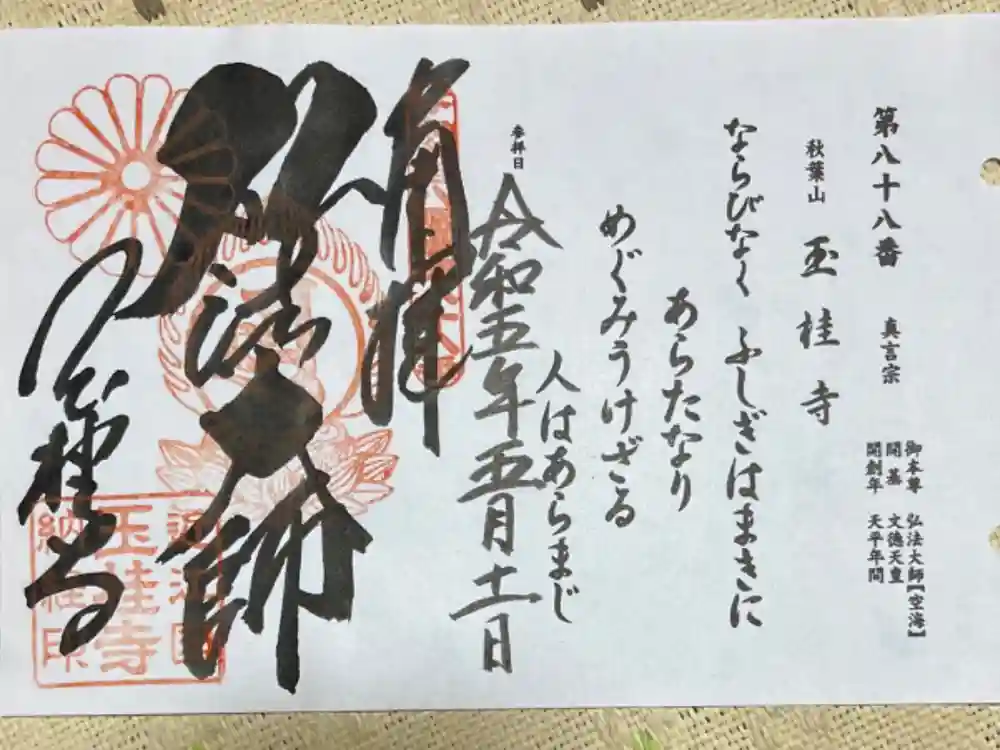 第八十八番　真言宗
御本尊　弘法大師【空海】
開基　文徳天皇
開創年　天平年間
秋葉山　玉桂寺
ならびなく　ふしぎはまきに
あらたなり
めぐみうけざる
人はあらまじ
参拝日　令和五年五月十一日
奉拝
弘法大師
玉桂寺
近江国
玉桂寺
納経印